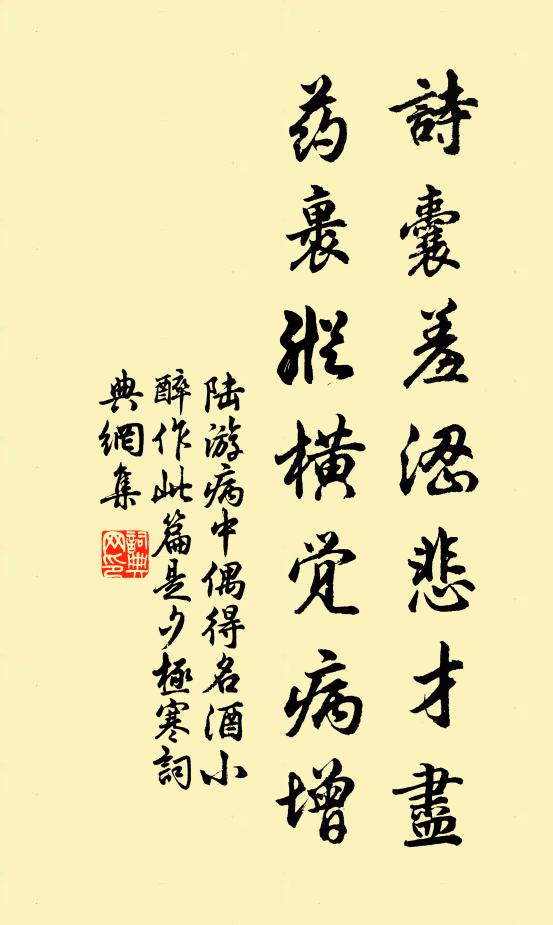 詩囊羞澀悲才盡
药裹縱橫覚病增
陆游病中偶得名酒小
醉作此篇是夕極寒詞
典網集
詞典网印